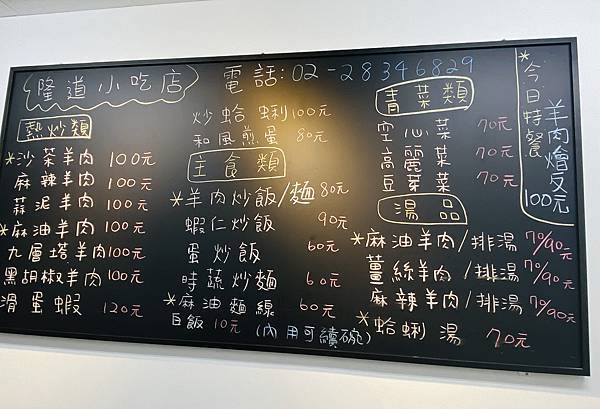 隆道小吃店
電話:02-28346829
熱炒類
*沙茶羊肉 100元
麻辣羊肉 100元
蒜泥羊肉 100元
*麻油羊肉 100元
九層塔羊肉 100元
黑胡椒羊肉 100元
滑蛋蝦 120元
炒蛤蜊 100元
和風煎蛋 80元
主食類
*羊肉炒飯/麵 80元
蝦仁炒飯 90元
蛋炒飯 60元
時蔬炒麵 60元
*麻油麵線 60元
白飯 10元 (內用可續碗)
青菜類
空心菜 70元
高麗菜 70元
豆芽菜 70元
湯品
*麻油羊肉/排湯 70/90元
薑絲羊肉/排湯 70/90元
麻辣羊肉/排湯 70/90元
*蛤蜊湯 70元
*今日特餐
羊肉燴飯
100元